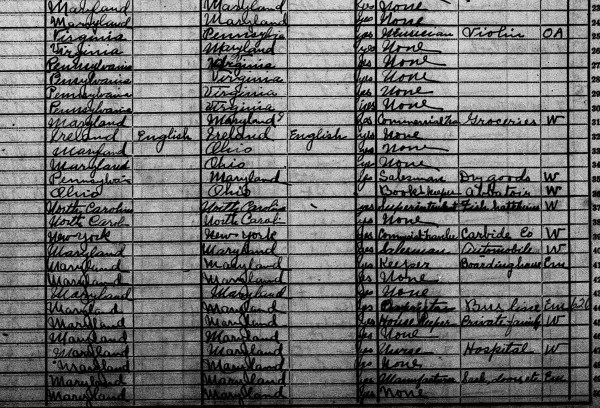 Maryland Maryland yes None 23
Maryland Maryland yes None 24
Virginia Pennsylvia yes Musician Violin OA 25
Virginia Maryland yes None 26
Pennsylvania Virginia yes None 27
Pennsylvania Virginia yes None 28
Pennsylvania Virginia yes None 29
Pennsylvania Virginia yes None 30
Maryland Maryland yes Groceries W 31
Ireland English Ireland English yes None 32
Maryland Ohio yes None 33
Maryland Ohio yes None 34
Pennsylvania Maryland yes Salesman Dry goods W 35
Ohio Ohio Bookkeeper W 36
North Carolina North Carolina yes Superintendent Fish hatcheries W 37
North Carol North Carol yes None 38
New York New York yes Carbide Co W 39
Maryland Maryland yes Salesman Automobile W 40
Maryland Maryland yes Keeper Boardinghouse Em 41
Maryland Maryland yes None 42
Maryland Maryland yes None 43
Maryland Maryland yes Bus line Em 44
Maryland Maryland yes House keeper Private family W 45
Maryland Maryland yes None 46
Maryland Maryland yes Nurse Hospital W 47
Maryland Maryland yes None 48
Maryland Maryland yes Manufacturer Em 49
Maryland Maryland yes None 50